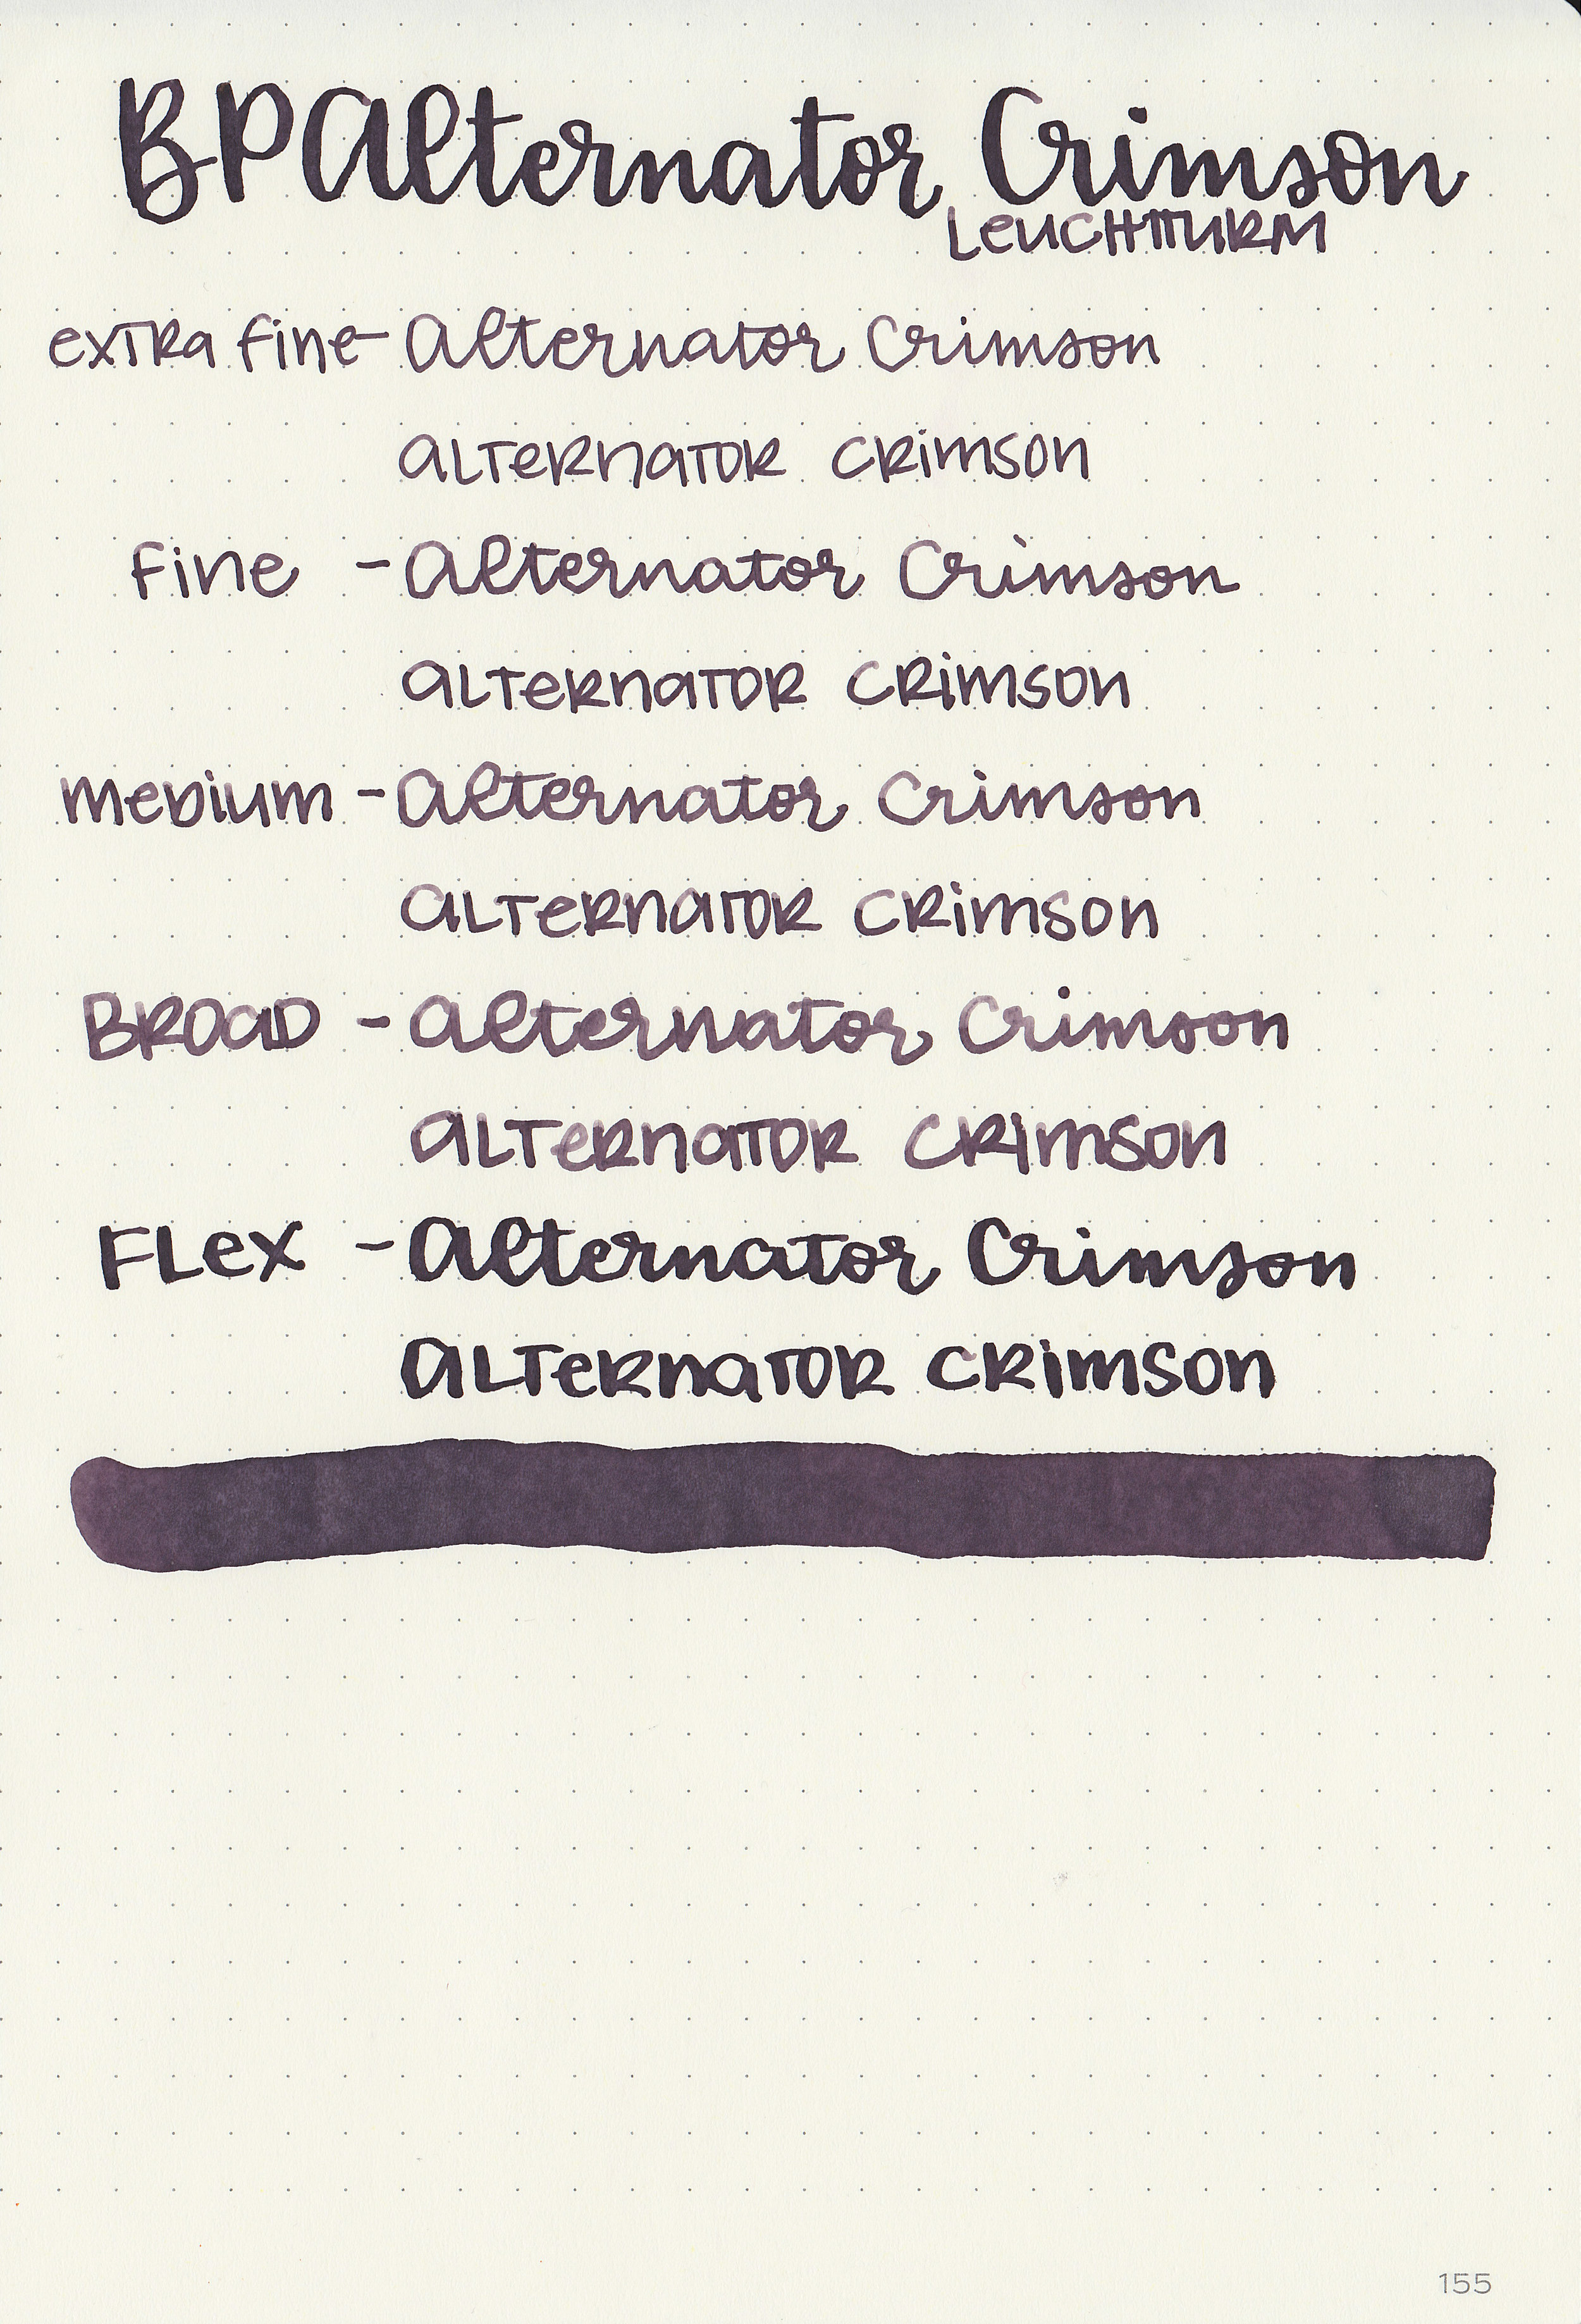 BP Alternator Crimson
LEUCHTTURM
extra fine - Alternator Crimson
Alternator Crimson
Fine - Alternator Crimson
Alternator Crimson
Medium - Alternator Crimson
Alternator Crimson
Broad - Alternator Crimson
Alternator Crimson
Flex - Alternator Crimson
Alternator Crimson
155